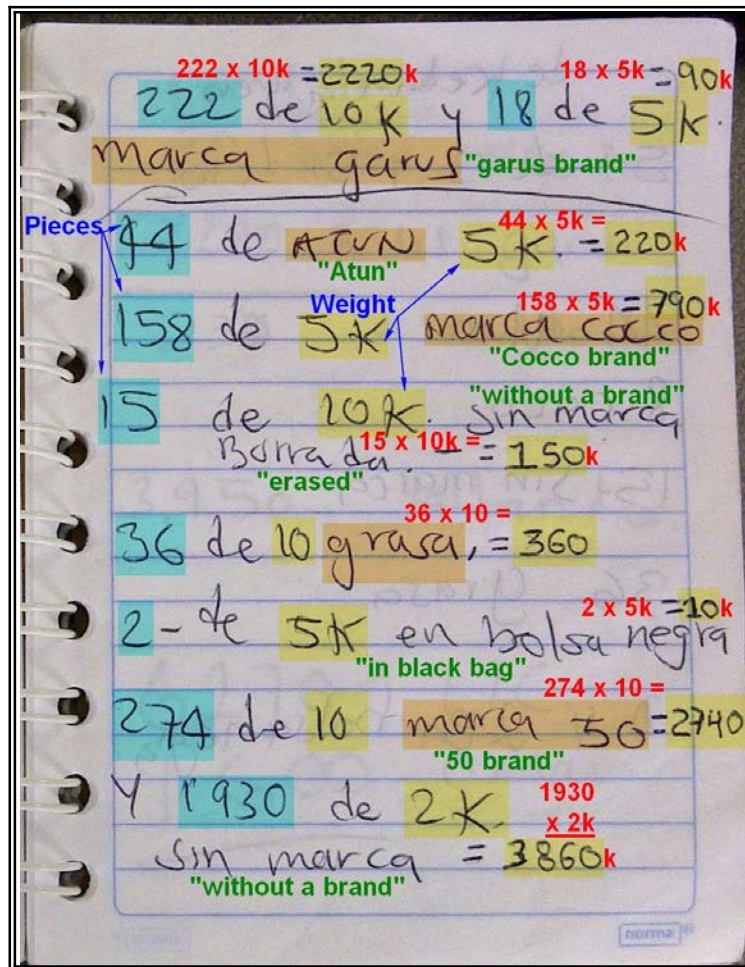 222 x 10k =2220k 18 x 5k =90k
222 de 10k y 18 de 5k.
marca garus "garus brand"
Pieces 44 x 5k =
44 de ATUN 5k. =220k
"Atun"
Weight 158 x 5k =790k
158 de 5k marca cocco
"Cocco brand"
"without a brand"
15 de 10k. sin marca
Borrada. 15 x 10k = = 150k
"erased"
36 x 10 =
36 de 10 grasa, = 360
2 x 5k =10k
2 - de 5k en bolsa negra
"in black bag"
274 x 10 =
274 de 10 marca 50 =2740
"50 brand"
Y 1'930 de 2k. 1930
x 2k
sin marca = 3860k
"without a brand"
norma